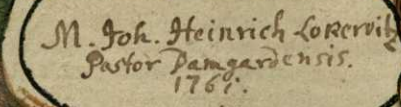 M. Joh. Heinrich Lokervitz
Pastor Damgardensis.
1761.